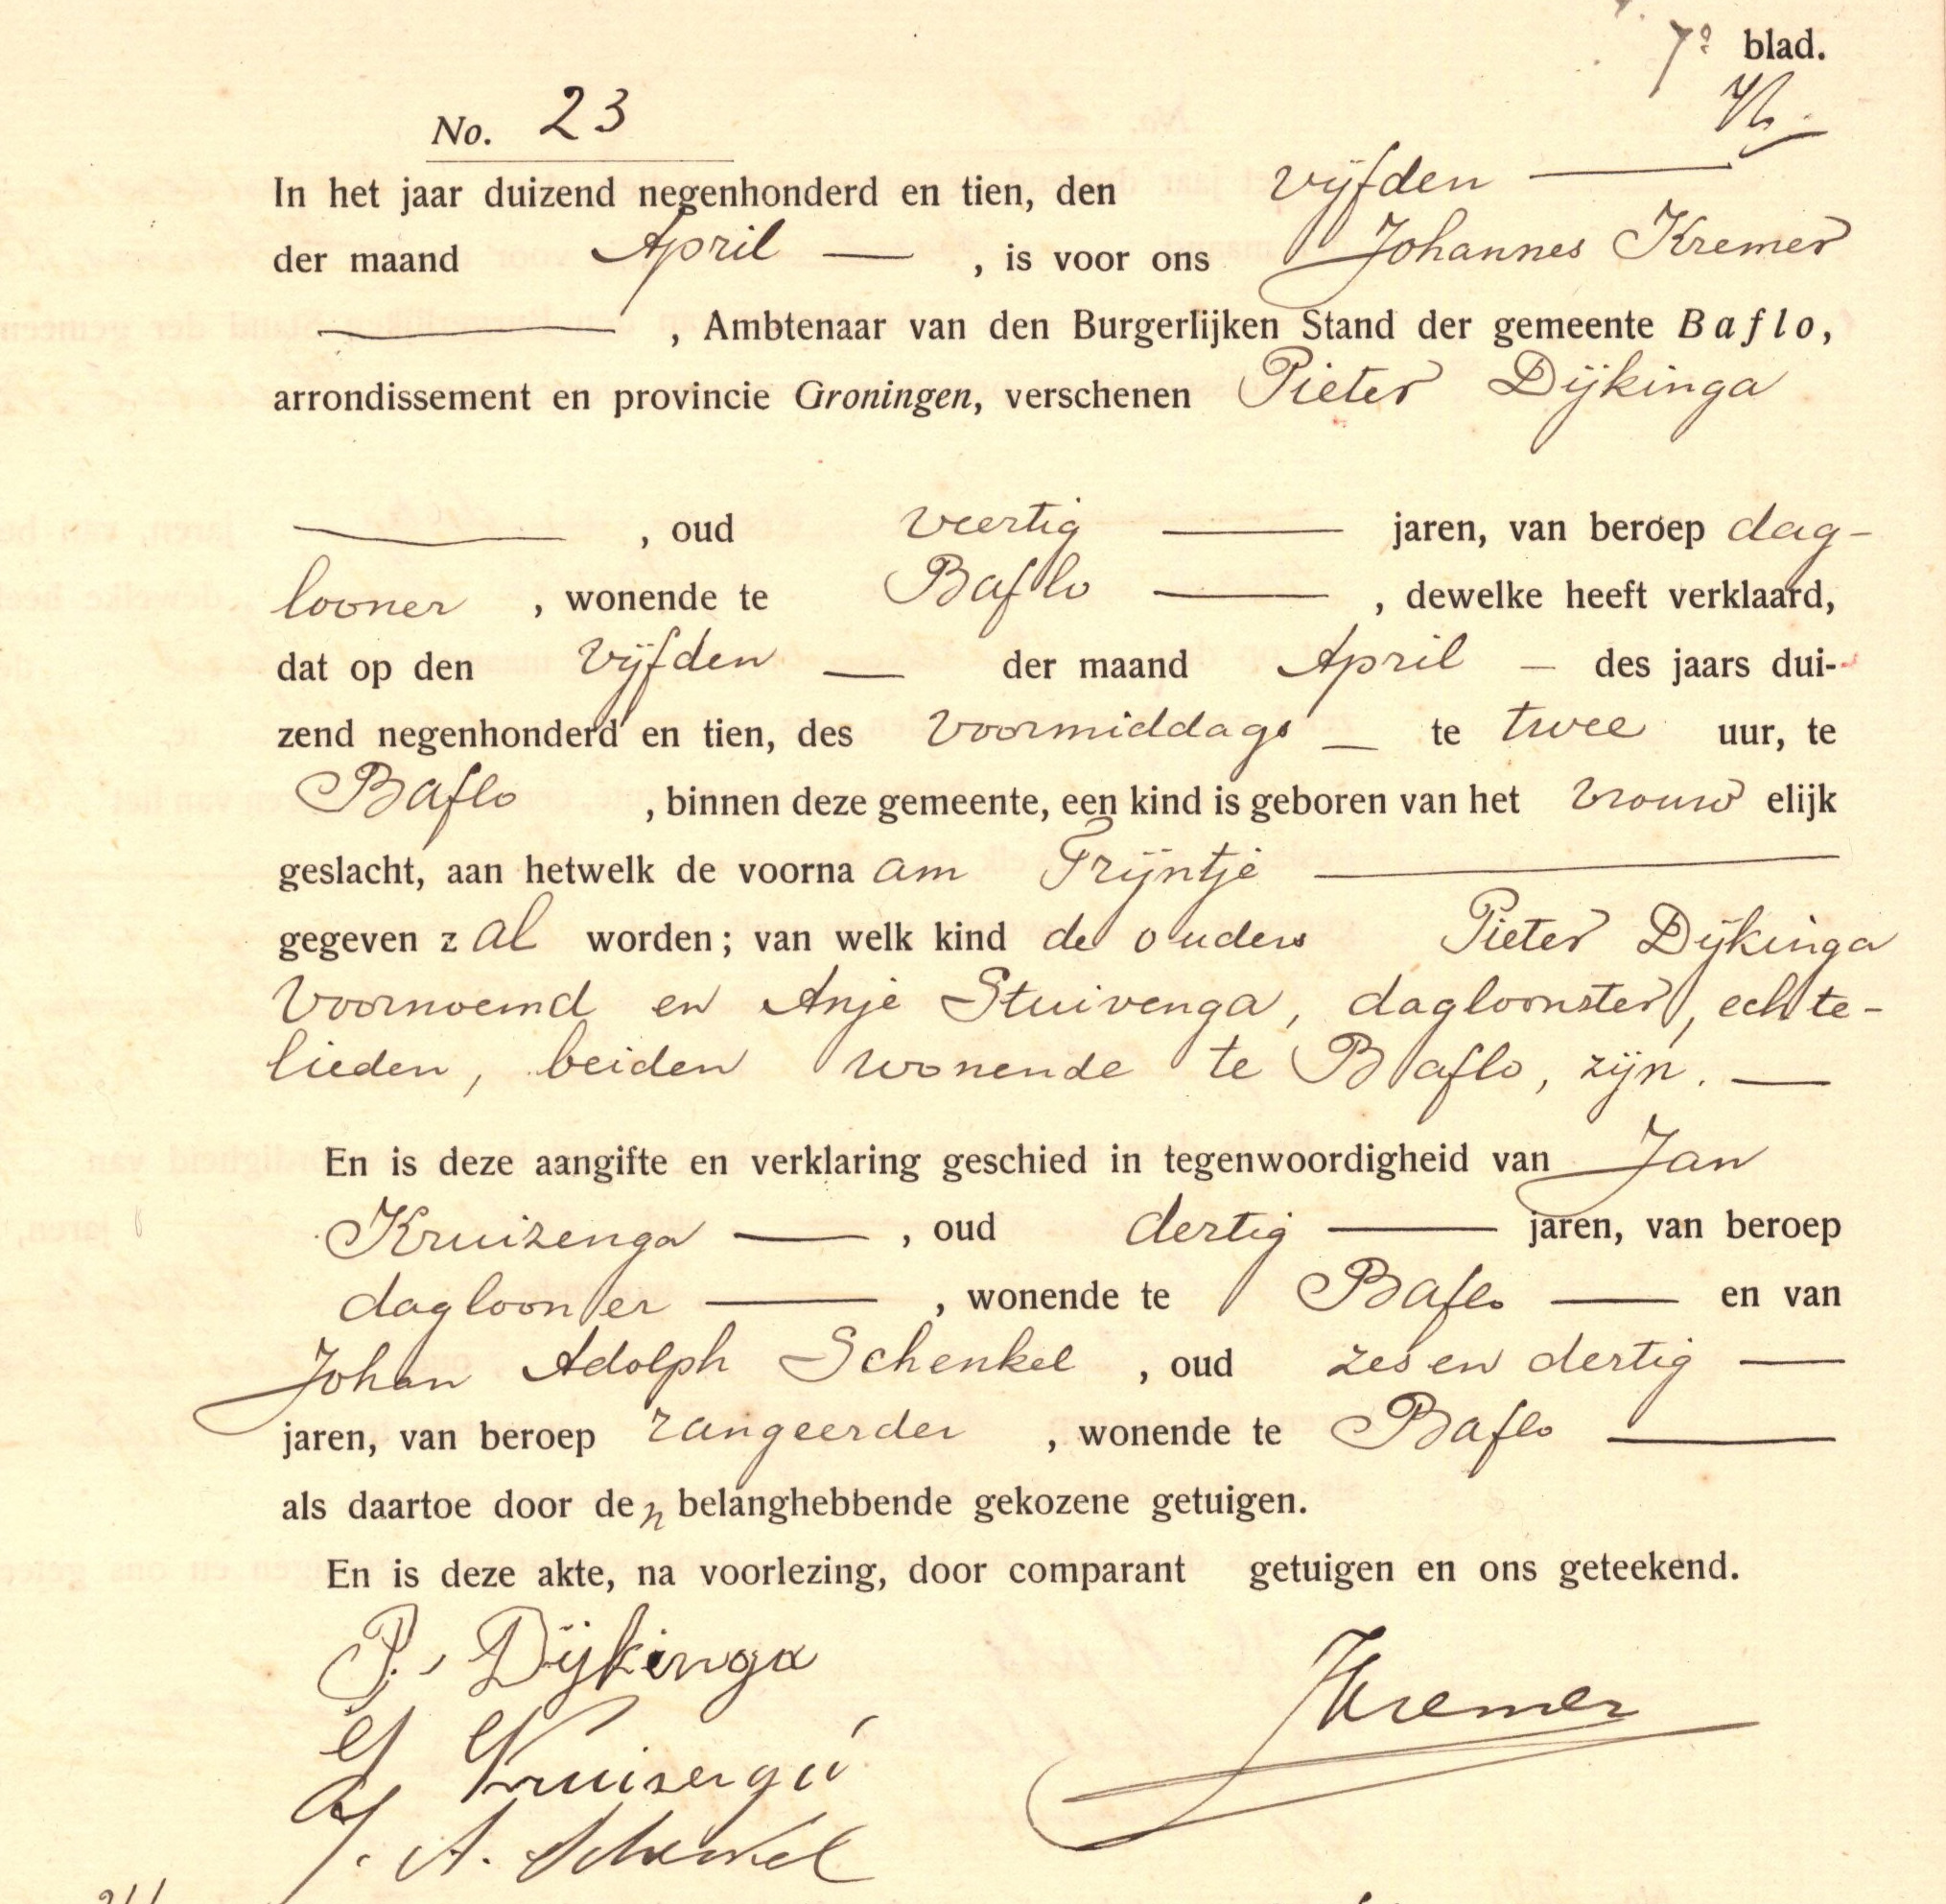 7e blad.
No. 23
In het jaar duizend negenhonderd en tien, den vijfden
der maand April, is voor ons Johannes Kremer
, Ambtenaar van den Burgerlijken Stand der gemeente Baflo,
arrondissement en provincie Groningen, verschenen Pieter Dijkinga
, oud veertig jaren, van beroep dag-
looner, wonende te Baflo, dewelke heeft verklaard,
dat op den vijfden der maand April des jaars dui-
zend negenhonderd en tien, des voormiddags te twee uur, te
Baflo, binnen deze gemeente, een kind is geboren van het vrouwelijk
geslacht, aan hetwelk de voornaam Trijntje
gegeven zal worden; van welk kind de ouders Pieter Dijkinga
voornoemd en Anje Stuivenga, dagloonster, echte-
lieden, beiden wonende te Baflo, zijn.
En is deze aangifte en verklaring geschied in tegenwoordigheid van Jan
Kruizenga, oud dertig jaren, van beroep
daglooner, wonende te Baflo en van
Johan Adolph Schenkel, oud zes en dertig
jaren, van beroep rangeerder, wonende te Baflo
als daartoe door den belanghebbende gekozene getuigen.
En is deze akte, na voorlezing, door comparant getuigen en ons geteekend.
P. Dijkinga
J Kruizenga
JKremer
J. A. Schenkel